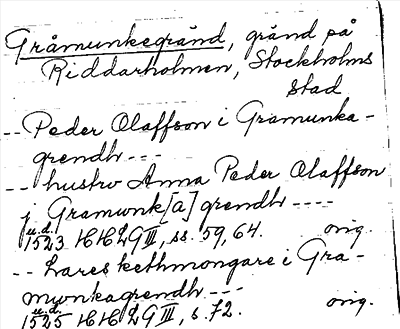 Gråmunkegränd, gränd på
Riddarholmen, Stockholms
stad
-- Peder Olaffson i Gramunka-
grendh ---
-- hustrv Anna Peder Olaffson
j Gramwnk[a]grendh ----
u.d.
1523 HH LG III, ss. 59, 64. orig.
-- Lares kethmongare i Gra-
mwnkagrendh ---
u.d.
1525 HH LG III, s. 72. orig.